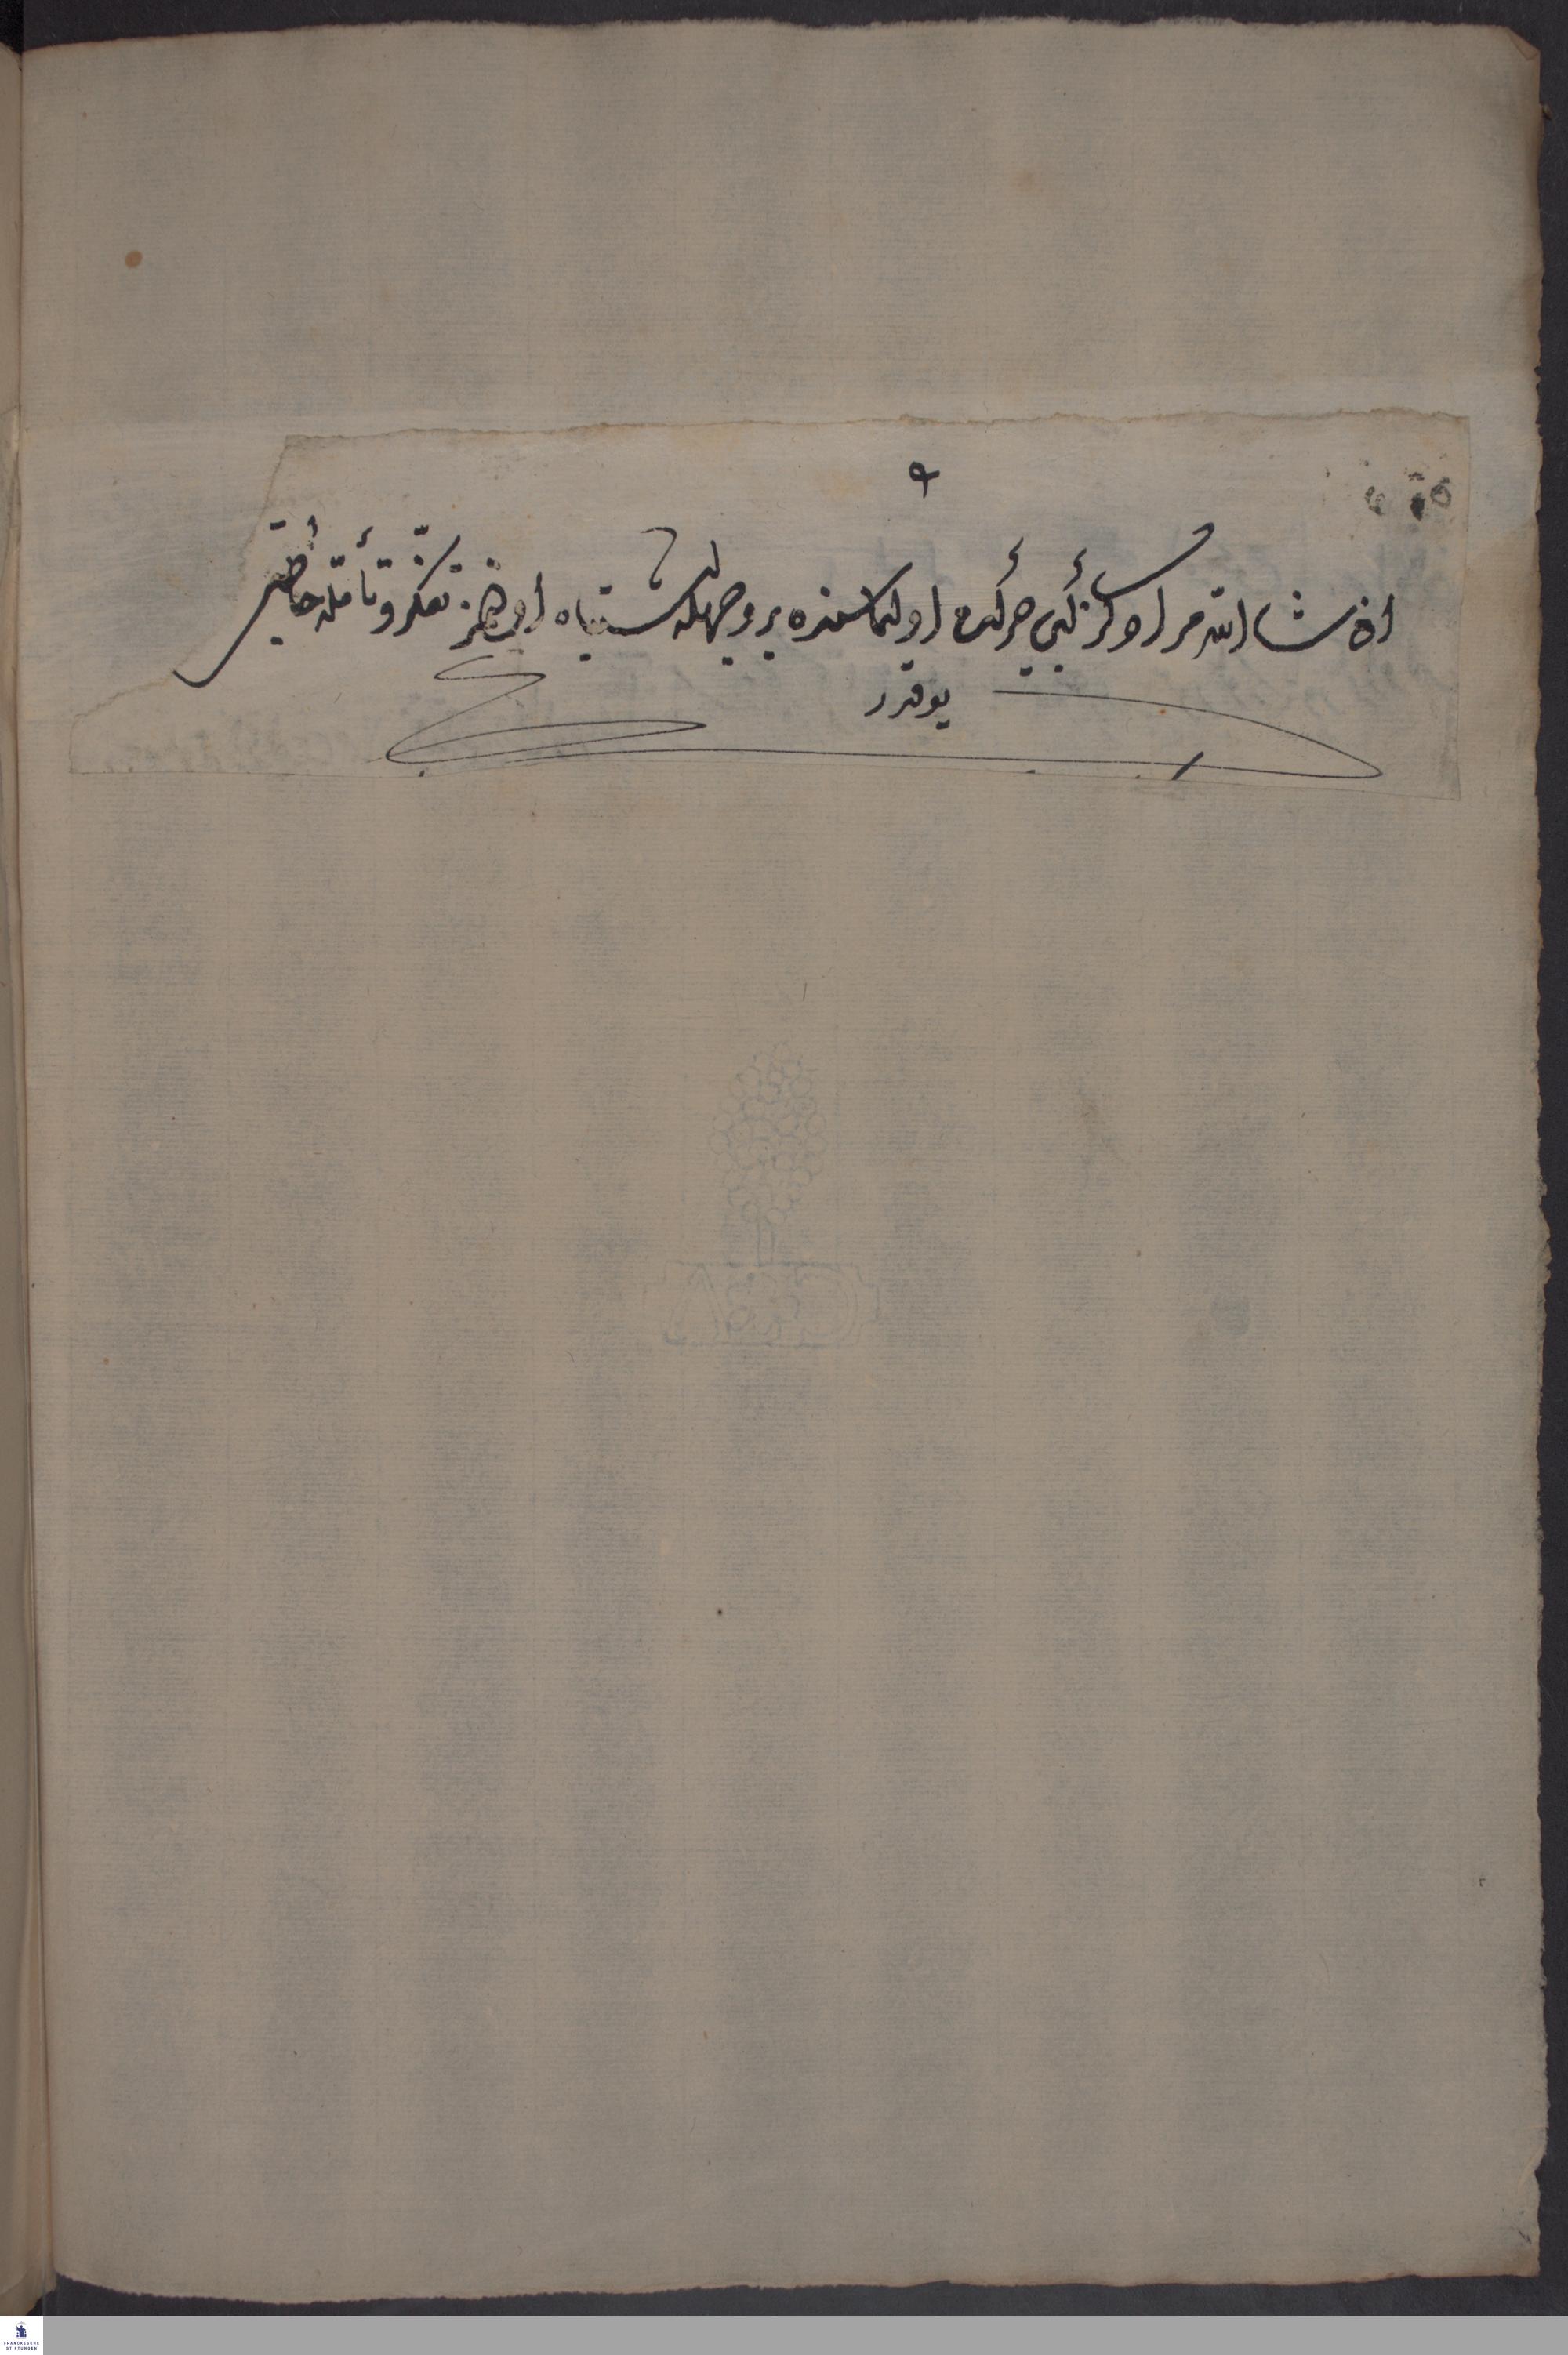 ان شا الله مراوكز كبى حركت اولنماسنده بر وجهله اشتباه اولنمز تفكر و تأمله حاجت
يوقدر
FRANCKESCHE
STIFTUNGEN